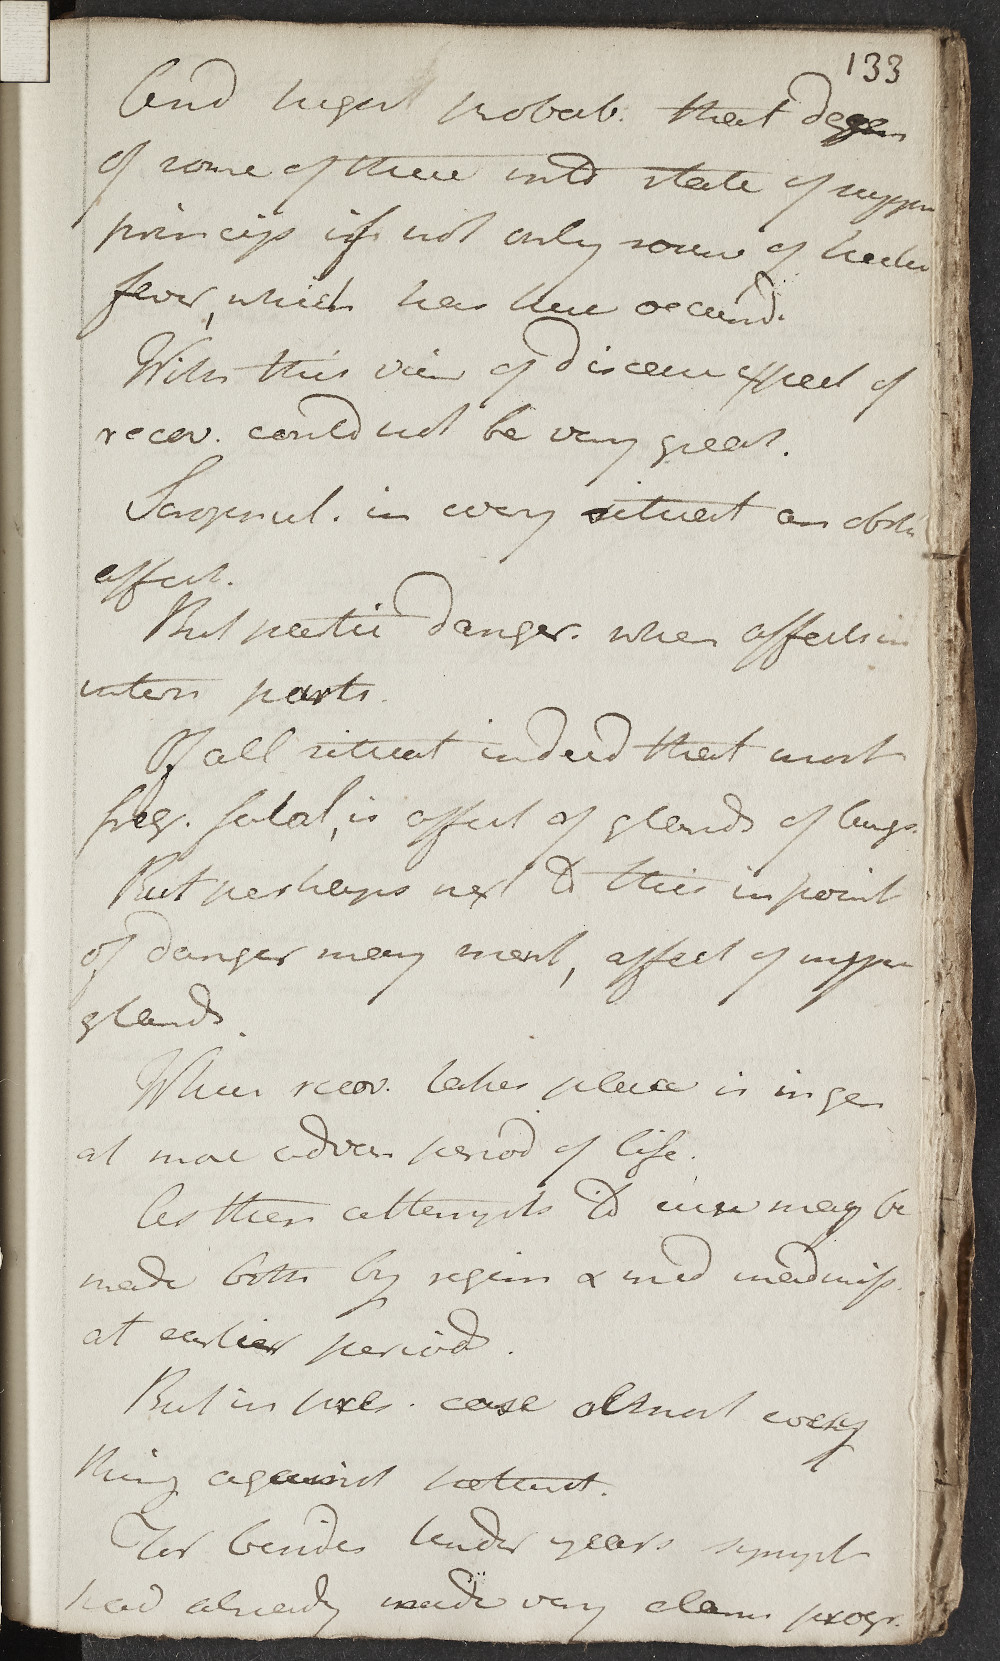 133
And highest probab. that degen
of some of these into state of suppu
princip if not only source of hectic
fever, which has here occurrd.
With this view of disease expect of
recov. could not be very great.
Scrophul. in every situat an obsti
affect.
But partic danger. when affects in
intern parts.
Of all situat indeed that most
freq. fatal, is affect of glands of lungs.
But perhaps next to this in point
of danger may ment, affect of
glands.
When recov. takes place is in gen
at more advan period of life.
As then attempts to cure may be
made both by regim & med
at earlier periods.
But in pres. case almost every
thing against patient.
For besides tender years sympt
had already made very alarm progr.